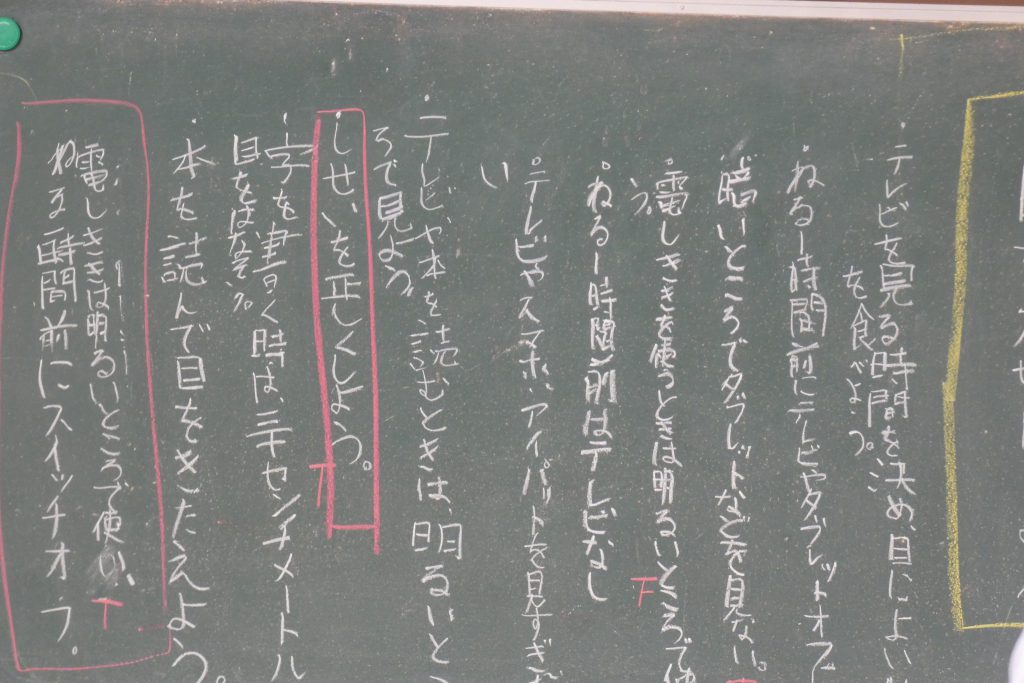 ・テレビを見る時間を決め、目によい
を食べよう。
・ねる一時間前にテレビやタブレットオフ
・暗いところでタブレットなどを見ない。
・電しきを使うときは明るいところで使
う。
・ねる一時間前はテレビなし
・テレビやスマホ、アイパットを見すぎな
い
・テレビや本を読むときは、明るいとこ
ろで見よう。
・しせいを正しくしよう。
T
・字を書く時は、三十センチメートル
目をはなそう。
・本を読んで目をきたえよう。
電しききは明るいところで使い、
ねる一時間前にスイッチオフ。
T